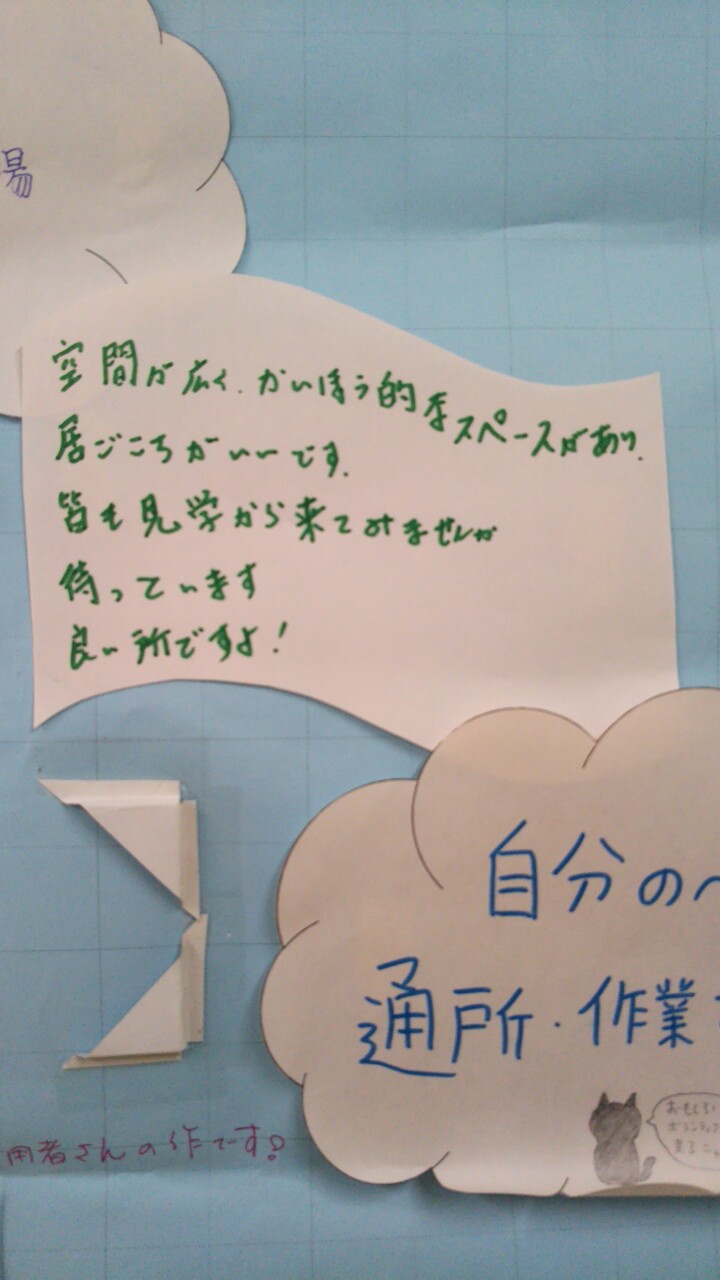 場
空間が広く、かいほう的なスペースがあり、
居ごころがいいです。
皆も見学から来てみませんか
待っています
良い所ですよ!
自分のペ
通所・作業
用者さんの作です!
おもしろい
ボランティア